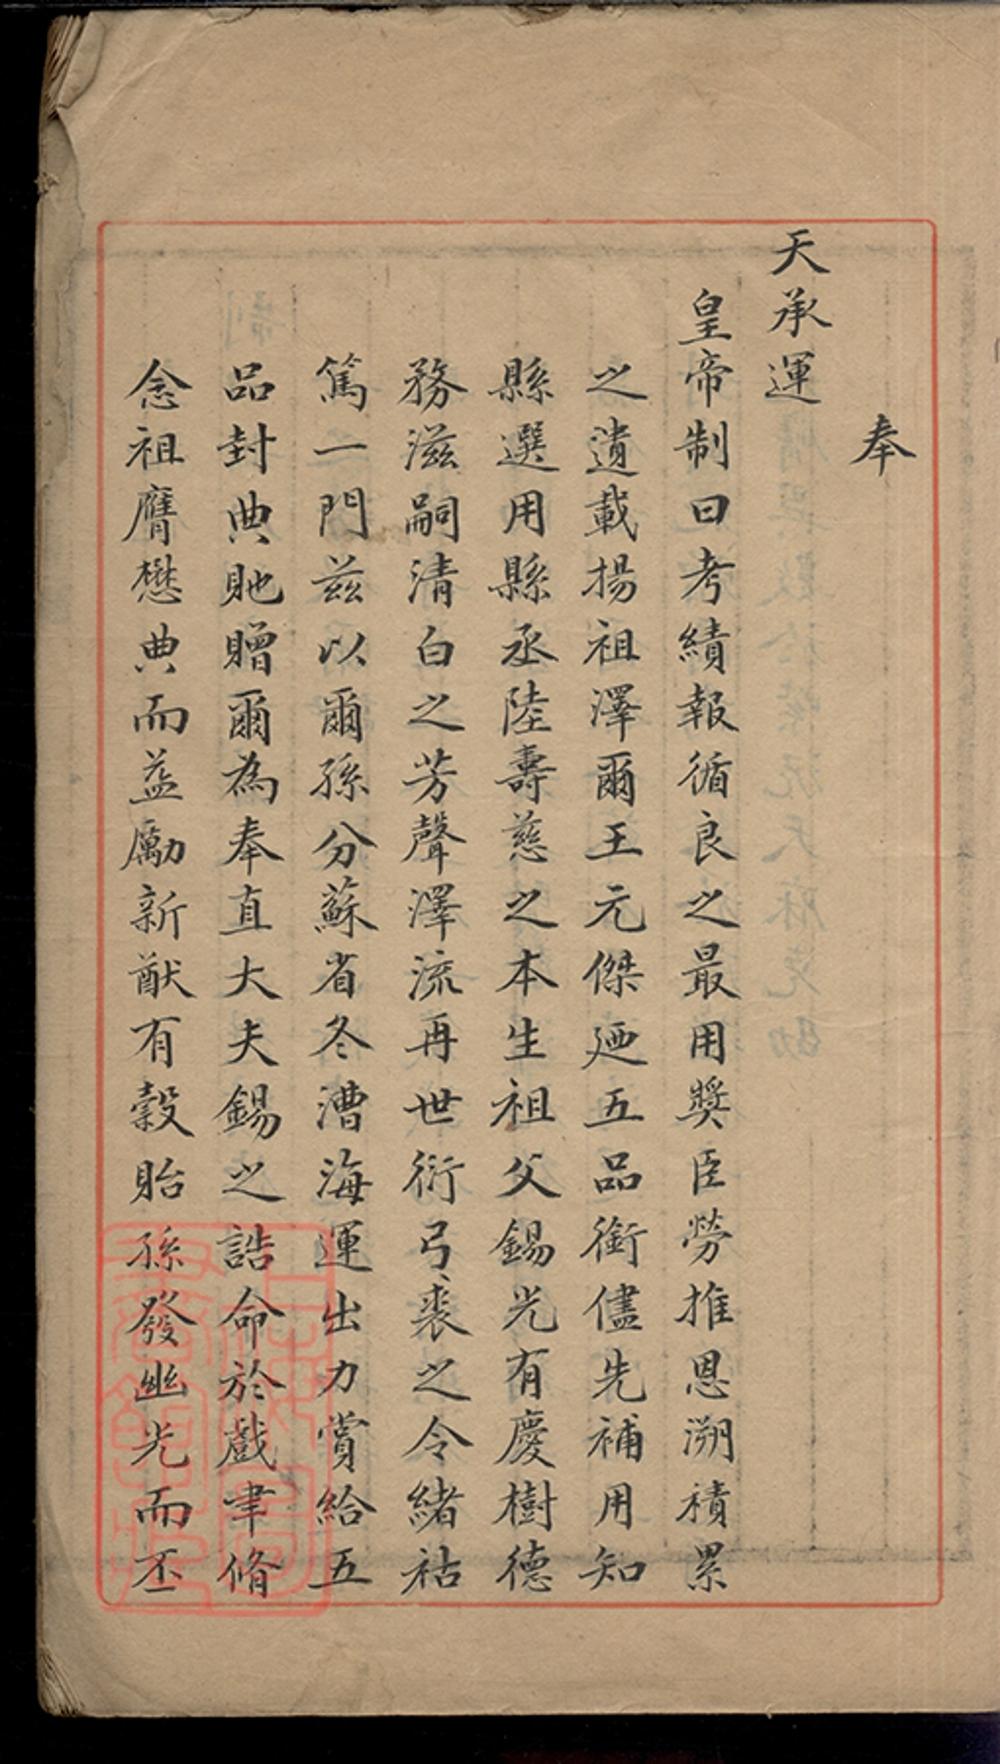 奉
天承運
皇帝制曰考績報循良之最用獎臣勞推恩溯積累
之遺載揚祖澤爾王元傑迺五品銜儘先補用知
縣選用縣丞陸壽慈之本生祖父錫光有慶樹德
務滋嗣清白之芳聲澤流再世衍弓裘之令緒祜
篤一門茲以爾孫分蘇省冬漕海運出力賞給五
品封典貤贈爾為奉直大夫錫之誥命於戲聿脩
念祖膺懋典而益勵新猷有穀貽孫發幽光而丕